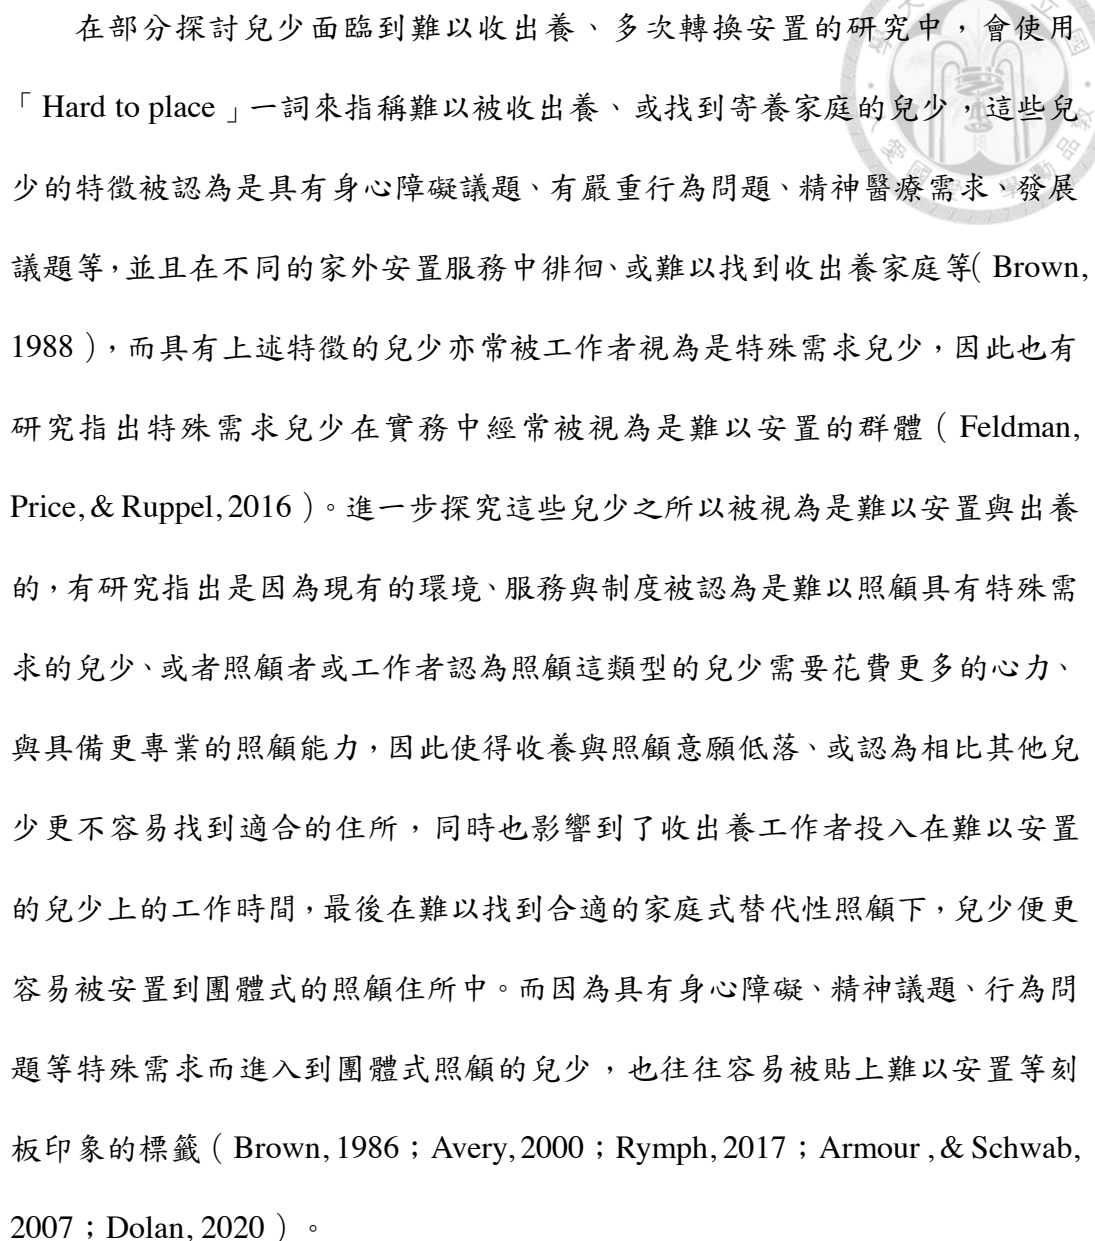 在部分探討兒少面臨到難以收出養、多次轉換安置的研究中，會使用
「Hard to place」一詞來指稱難以被收出養、或找到寄養家庭的兒少，這些兒
少的特徵被認為是具有身心障礙議題、有嚴重行為問題、精神醫療需求、發展
議題等，並且在不同的家外安置服務中徘徊、或難以找到收出養家庭等（Brown,
1988），而具有上述特徵的兒少亦常被工作者視為是特殊需求兒少，因此也有
研究指出特殊需求兒少在實務中經常被視為是難以安置的群體（Feldman,
Price, & Ruppel, 2016）。進一步探究這些兒少之所以被視為是難以安置與出養
的，有研究指出是因為現有的環境、服務與制度被認為是難以照顧具有特殊需
求的兒少、或者照顧者或工作者認為照顧這類型的兒少需要花費更多的心力、
與具備更專業的照顧能力，因此使得收養與照顧意願低落、或認為相比其他兒
少更不容易找到適合的住所，同時也影響到了收出養工作者投入在難以安置
的兒少上的工作時間，最後在難以找到合適的家庭式替代性照顧下，兒少便更
容易被安置到團體式的照顧住所中。而因為具有身心障礙、精神議題、行為問
題等特殊需求而進入到團體式照顧的兒少，也往往容易被貼上難以安置等刻
板印象的標籤（Brown, 1986；Avery, 2000；Rymph, 2017；Armour , & Schwab,
2007；Dolan, 2020）。